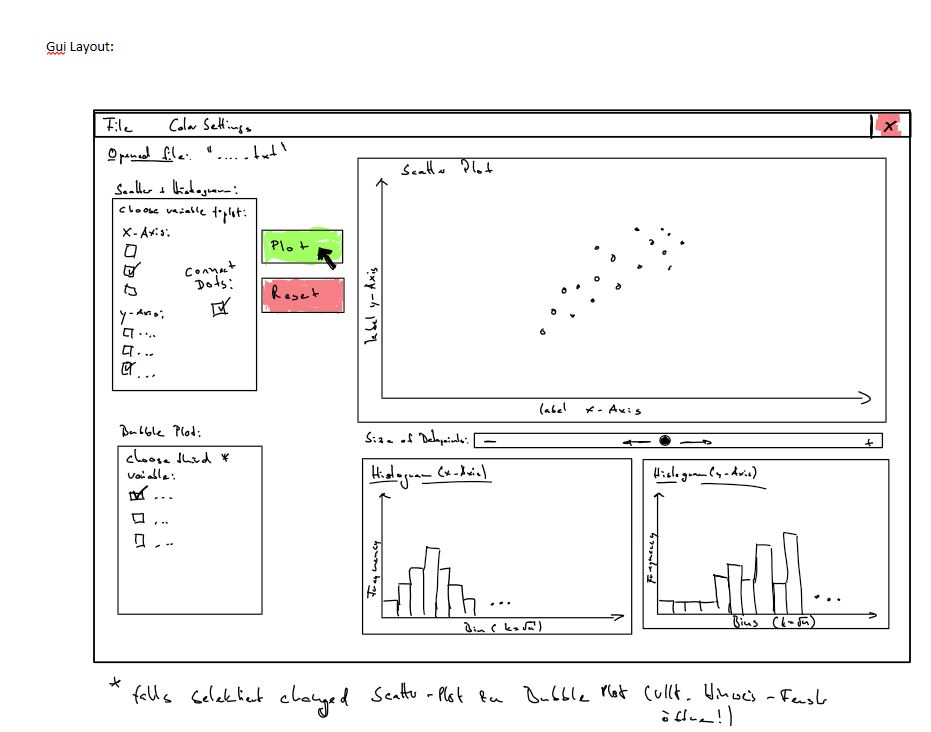 Gui Layout:
File Color Settings x
Opened file: ".....txt"
Scatter + Histogram:
choose variable to plot:
X-Axis:
Connect
Dots:
y-Axis:
...
...
...
Plot
Reset
Scatter Plot
label y-Axis
label x-Axis
Size of Datapoints: - +
Bubble Plot:
choose third *
variable:
...
...
...
Histogram (x-Axis)
Frequency
...
Bin (k=√n)
Histogram (y-Axis)
Frequency
...
Bins (k=√n)
* falls selektiert changed Scatter-Plot zu Bubble Plot (vllt. Hinweis-Fenster
öffnen!)